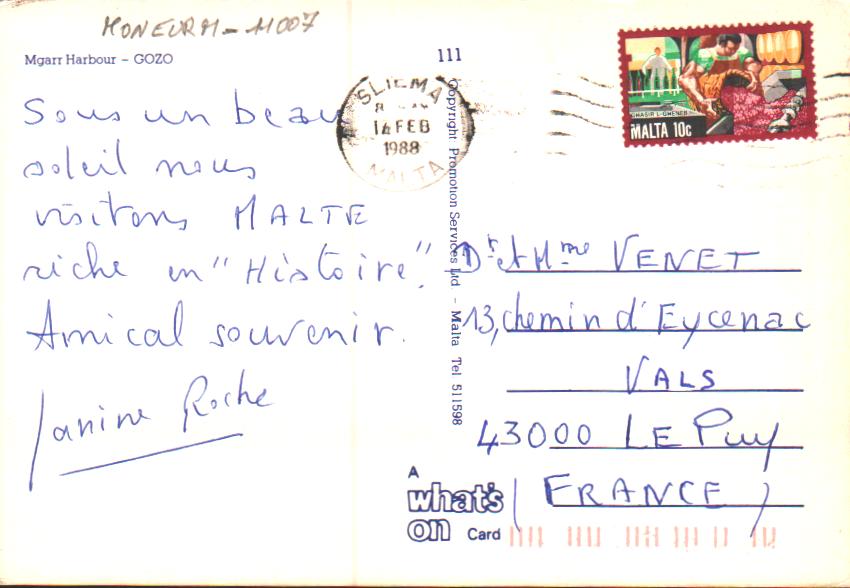 MONEURM - 11007
Mgarr Harbour – GOZO
111
Sous un beau
soleil nous
visitons MALTE
riche en "Histoire".
Amical souvenir.
Janine Roche
SLIEMA
14 FEB
1988
MALTA
GHASIR L-GHENEB
MALTA 10c
Copyright Promotion Services Ltd – Malta Tel 511598
Dr et Mme VENET
13, chemin d'Eycenac
VALS
43000 LE Puy
(FRANCE)
A
what's
on Card